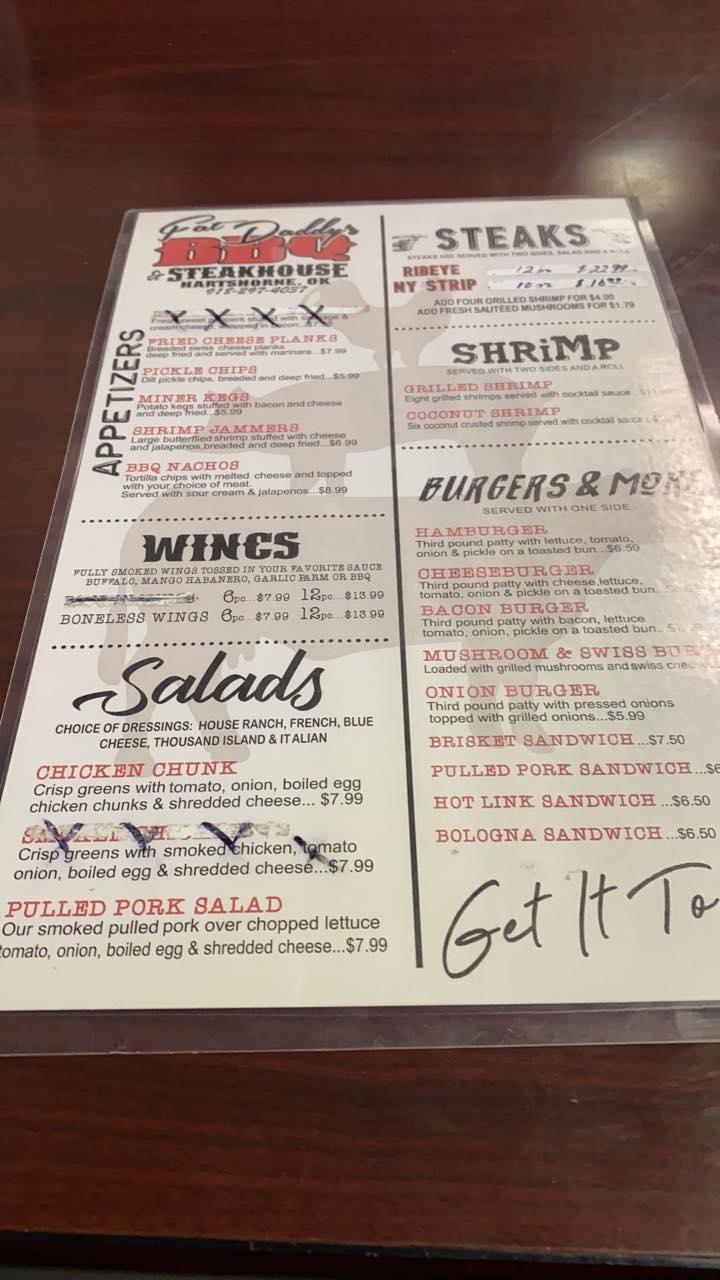 Fat Daddy's
BBQ
& STEAKHOUSE
HARTSHORNE, OK
918-297-4037
APPETIZERS
cream cheese, wrapped in bacon...$7
FRIED CHEESE PLANKS
Breaded swiss cheese planks
deep fried and served with marinara...$7.99
PICKLE CHIPS
Dill pickle chips, breaded and deep fried...$5.99
MINER KEGS
Potato kegs stuffed with bacon and cheese
and deep fried...$5.99
SHRIMP JAMMERS
Large butterflied shrimp stuffed with cheese
and jalapenos, breaded and deep fried...$6.99
BBQ NACHOS
Tortilla chips with melted cheese and topped
with your choice of meat.
Served with sour cream & jalapenos...$8.99
WINGS
FULLY SMOKED WINGS TOSSED IN YOUR FAVORITE SAUCE
BUFFALO, MANGO HABANERO, GARLIC PARM OR BBQ
6pc...$7.99 12pc...$13.99
BONELESS WINGS 6pc...$7.99 12pc...$13.99
Salads
CHOICE OF DRESSINGS: HOUSE RANCH, FRENCH, BLUE
CHEESE, THOUSAND ISLAND & ITALIAN
CHICKEN CHUNK
Crisp greens with tomato, onion, boiled egg
chicken chunks & shredded cheese... $7.99
Crisp greens with smoked chicken, tomato
onion, boiled egg & shredded cheese...$7.99
PULLED PORK SALAD
Our smoked pulled pork over chopped lettuce
tomato, onion, boiled egg & shredded cheese...$7.99
STEAKS
STEAKS ARE SERVED WITH TWO SIDES, SALAD AND A ROLL
RIBEYE 12 oz $22.99
NY STRIP 10 oz
ADD FOUR GRILLED SHRIMP FOR $4.00
ADD FRESH SAUTÉED MUSHROOMS FOR $1.79
SHRiMP
SERVED WITH TWO SIDES AND A ROLL
GRILLED SHRIMP
Eight grilled shrimps served with cocktail sauce
COCONUT SHRIMP
Six coconut crusted shrimp served with cocktail sauce
BURGERS & MORE
SERVED WITH ONE SIDE
HAMBURGER
Third pound patty with lettuce, tomato,
onion & pickle on a toasted bun...$6.59
CHEESEBURGER
Third pound patty with cheese, lettuce,
tomato, onion & pickle on a toasted bun
BACON BURGER
Third pound patty with bacon, lettuce
tomato, onion, pickle on a toasted bun..
MUSHROOM & SWISS BUR
Loaded with grilled mushrooms and swiss chee
ONION BURGER
Third pound patty with pressed onions
topped with grilled onions...$5.99
BRISKET SANDWICH...$7.50
PULLED PORK SANDWICH...$6
HOT LINK SANDWICH ...$6.50
BOLOGNA SANDWICH ...$6.50
Get It To